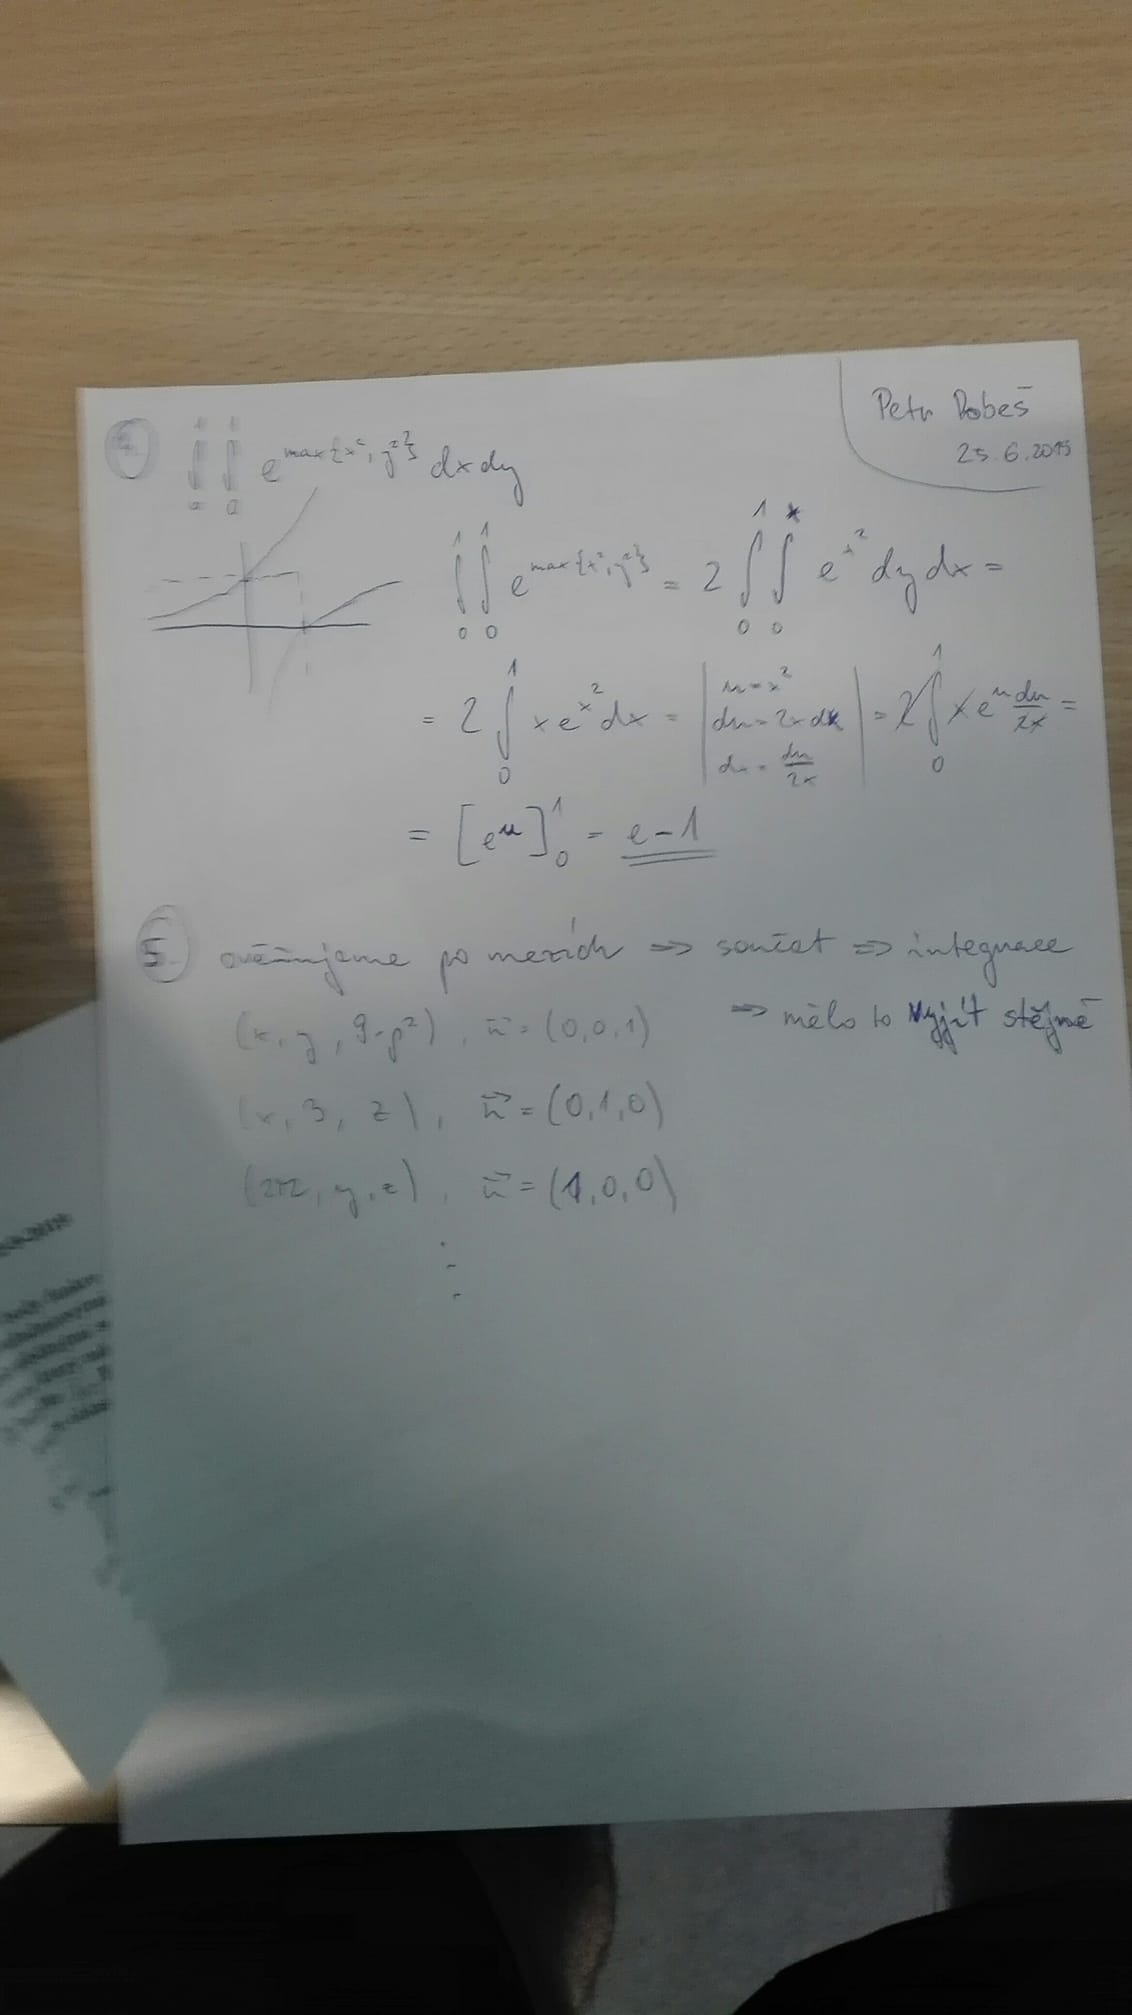 Petr Dobeš
25.6.2015
4. ∫₀¹ ∫₀¹ e^{max{x², y²}} dx dy
∫₀¹ ∫₀¹ e^{max{x², y²}} = 2 ∫₀¹ ∫₀ˣ e^{x²} dy dx =
= 2 ∫₀¹ x e^{x²} dx = | u = x² | du = 2x dx | dx = du/2x | = 2 ∫₀¹ x e^u du/2x =
= [e^u]₀¹ = e - 1
5. ověřujeme po mezích ⇒ součet ⇒ integrace
⇒ mělo to vyjít stejně
(x, y, 9-y²), n⃗ = (0,0,1)
(x, 3, z), n⃗ = (0,1,0)
y, z), n⃗ = (1,0,0)
⋮